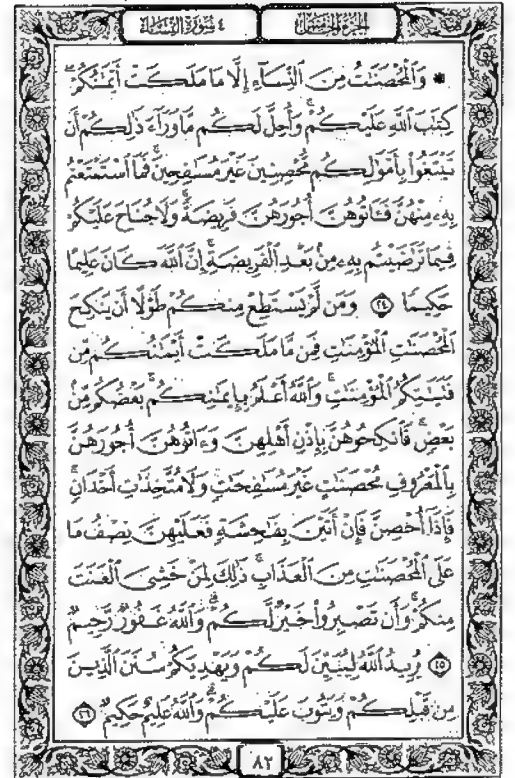 الجزء الخامس
٤ سورة النساء
* وَٱلْمُحْصَنَٰتُ مِنَ ٱلنِّسَآءِ إِلَّا مَا مَلَكَتْ أَيْمَٰنُكُمْ
كِتَٰبَ ٱللَّهِ عَلَيْكُمْ ۚ وَأُحِلَّ لَكُم مَّا وَرَآءَ ذَٰلِكُمْ أَن
تَبْتَغُوا۟ بِأَمْوَٰلِكُم مُّحْصِنِينَ غَيْرَ مُسَٰفِحِينَ ۚ فَمَا ٱسْتَمْتَعْتُم
بِهِۦ مِنْهُنَّ فَـَٔاتُوهُنَّ أُجُورَهُنَّ فَرِيضَةً ۚ وَلَا جُنَاحَ عَلَيْكُمْ
فِيمَا تَرَٰضَيْتُم بِهِۦ مِنۢ بَعْدِ ٱلْفَرِيضَةِ ۚ إِنَّ ٱللَّهَ كَانَ عَلِيمًا
حَكِيمًا ٢٤ وَمَن لَّمْ يَسْتَطِعْ مِنكُمْ طَوْلًا أَن يَنكِحَ
ٱلْمُحْصَنَٰتِ ٱلْمُؤْمِنَٰتِ فَمِن مَّا مَلَكَتْ أَيْمَٰنُكُم مِّن
فَتَيَٰتِكُمُ ٱلْمُؤْمِنَٰتِ ۚ وَٱللَّهُ أَعْلَمُ بِإِيمَٰنِكُم ۚ بَعْضُكُم مِّنۢ
بَعْضٍ ۚ فَٱنكِحُوهُنَّ بِإِذْنِ أَهْلِهِنَّ وَءَاتُوهُنَّ أُجُورَهُنَّ
بِٱلْمَعْرُوفِ مُحْصَنَٰتٍ غَيْرَ مُسَٰفِحَٰتٍ وَلَا مُتَّخِذَٰتِ أَخْدَانٍ ۚ
فَإِذَآ أُحْصِنَّ فَإِنْ أَتَيْنَ بِفَٰحِشَةٍ فَعَلَيْهِنَّ نِصْفُ مَا
عَلَى ٱلْمُحْصَنَٰتِ مِنَ ٱلْعَذَابِ ۚ ذَٰلِكَ لِمَنْ خَشِىَ ٱلْعَنَتَ
مِنكُمْ ۚ وَأَن تَصْبِرُوا۟ خَيْرٌ لَّكُمْ ۗ وَٱللَّهُ غَفُورٌ رَّحِيمٌ
٢٥ يُرِيدُ ٱللَّهُ لِيُبَيِّنَ لَكُمْ وَيَهْدِيَكُمْ سُنَنَ ٱلَّذِينَ
مِن قَبْلِكُمْ وَيَتُوبَ عَلَيْكُمْ ۗ وَٱللَّهُ عَلِيمٌ حَكِيمٌ ٢٦
٨٢